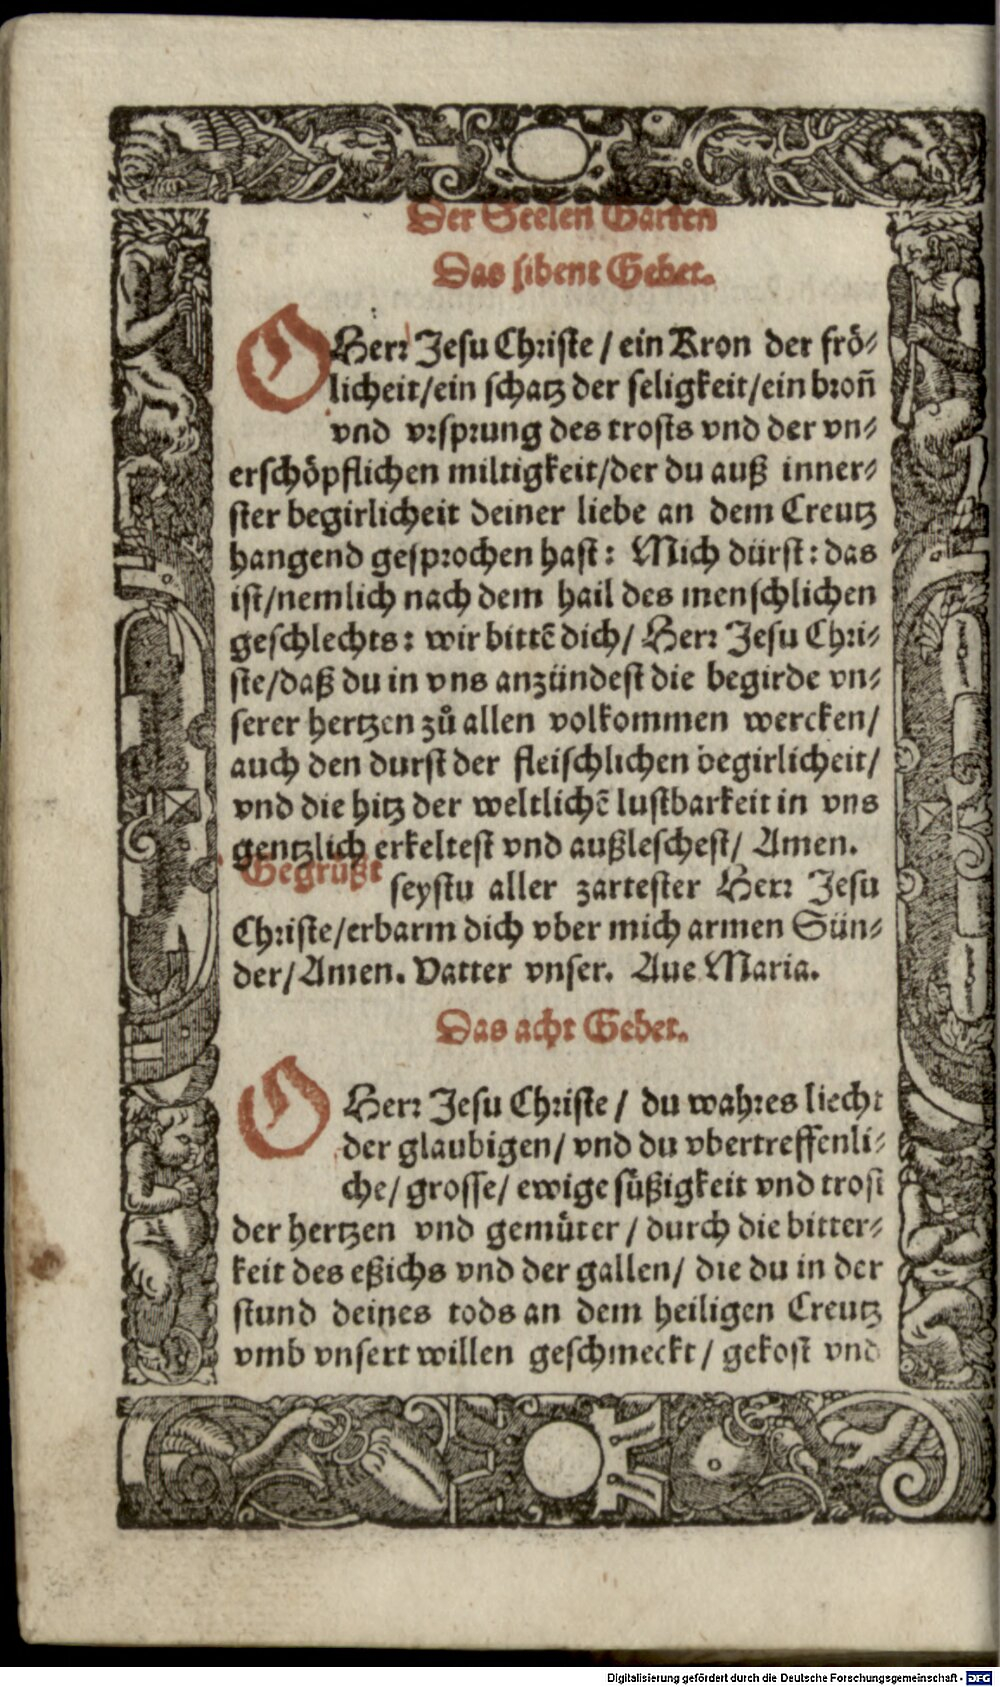 Der Seelen Garten
Das sibent Gebet.
O Herr Jesu Christe / ein Kron der frö⸗
licheit/ein schatz der seligkeit/ein bron̄
vnd vrsprung des trosts vnd der vn⸗
erschöpflichen miltigkeit/der du auß inner⸗
ster begirlicheit deiner liebe an dem Creutz
hangend gesprochen hast: Mich dürst: das
ist/nemlich nach dem hail des menschlichen
geschlechts: wir bittē dich/ Herr Jesu Chri⸗
ste/daß du in vns anzündest die begirde vn⸗
serer hertzen zů allen volkommen wercken/
auch den durst der fleischlichen begirlicheit/
vnd die hitz der weltlichē lustbarkeit in vns
gentzlich erkeltest vnd außleschest/ Amen.
Gegrüßt seystu aller zartester Herr Jesu
Christe/erbarm dich vber mich armen Sün⸗
der/Amen. Vatter vnser. Aue Maria.
Das acht Gebet.
O Herr Jesu Christe / du wahres liecht
der glaubigen/ vnd du vbertreffenli⸗
che/ grosse/ ewige süßigkeit vnd trost
der hertzen vnd gemüter / durch die bitter⸗
keit des eßichs vnd der gallen/ die du in der
stund deines tods an dem heiligen Creutz
vmb vnsert willen geschmeckt / gekost vnd
Digitalisierung gefördert durch die Deutsche Forschungsgemeinschaft - DFG